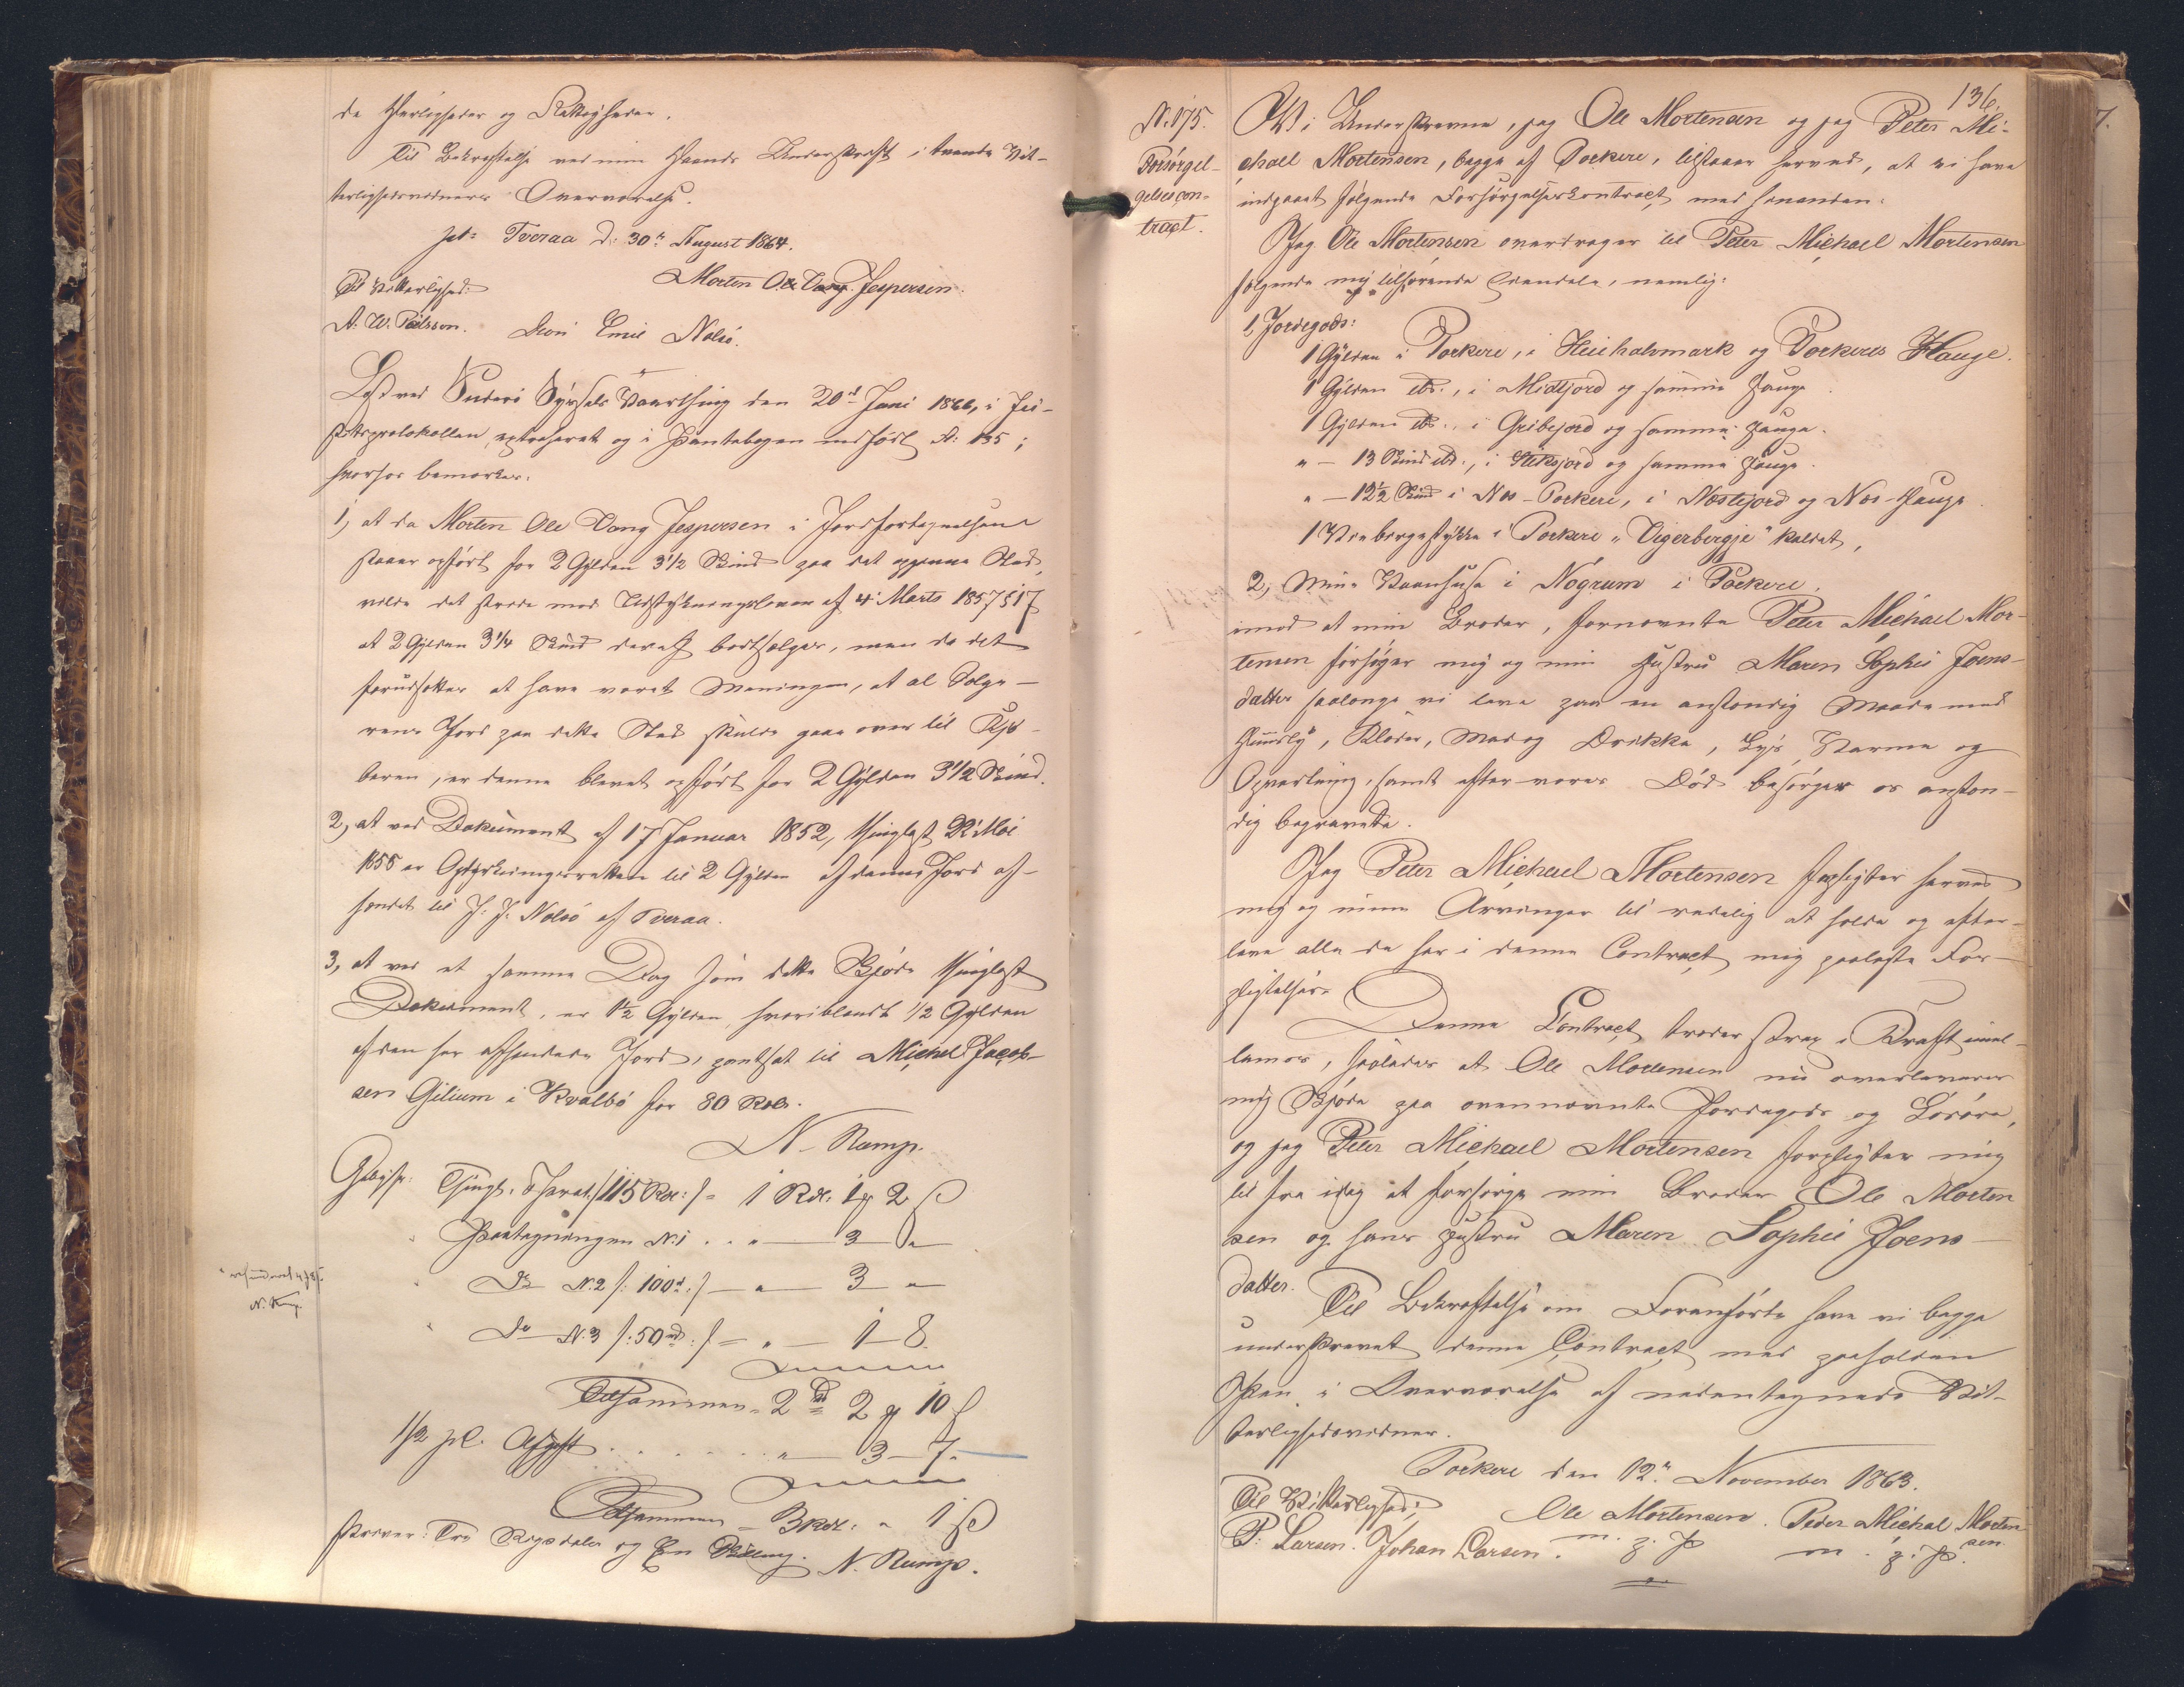 de Herligheder og Rettigheder.
Til Bekræftelse ved min Haands Underskrift i tvende Vit-
terlighedsvidners Overværelse.
pt: Tveraa d: 30te August 1864.
Til Vitterlighed: Morten Ole Vang Jespersen.
A. W. Poulsson. Emil Nolsö.
Læst ved Suderö Syssels Vaarthing den 20de Juni 1866, i Ju-
stitsprotokollen extraheret og i Pantebogen indført No: 135;
hvorfor bemærkes:
1, at da Morten Ole Vang Jespersen i Jordfortegnelsen
staaer opført for 2 Gylden 3 1/2 Skind paa det Sted,
vilde det stride mod Udstykningsloven af 4 Marts 1857 § 17
at 2 Gylden 3 1/4 Skind deraf bortsælges, men da det
forudsættes at have været Meningen, at al Sælge-
rens Jord paa dette Sted skulde gaae over til Kjø-
beren, er denne blevet opført for 2 Gylden 3 1/2 Skind.
2, at ved Dokument af 17 Januar 1852, thinglæst 22 Mai
1855 er Opdyrkningsretten til 2 Gylden af denne Jord af-
hændet til J. J. Nolsö af Tveraa.
3, at ved et samme Dag som dette Skjøde thinglæst
Dokument, er 1 1/2 Gylden, hvoriblandt 1/2 Gylden
af den her afhændede Jord, pantsat til Michel Jacob-
sen Gilium i Kvalbö for 80 Rdlr.
N. Rump.
Gebyr: Thingl. /:115 Rdl:/ = 1 Rdl. 1 # 2 ß
Paategningen No 1 . . " — 3 "
Do No 2 /: 100 :/ — " — 3 "
Do No 3 /: 50 :/ — " — 1 — 8
N. Rump.
Tilsammen = 2 Rd 2 # 10 ß
1/2 pCt. Afgift . . . . . " — 3 — 7.
Tilsammen 3 Rdl: " 1 ß
skriver: Tre Rigsdaler og En Skilling. N. Rump.
136.
No. 175.
Forsörgel-
gelsescon-
tract.
Vi Underskrevne, jeg Ole Mortensen og jeg Peter Mi-
chael Mortensen, begge af Porkere, tilstaaer herved, at vi have
indgaaet følgende Forsørgelseskontract med hinanden:
Jeg Ole Mortensen overdrager til Peter Michael Mortensen
følgende mig tilhørende Eiendele, nemlig:
1, Jordegods:
1 Gylden i Porkere, i Heiehalvmark og Porkeres Hauge.
1 Gylden do., i Midtjord og samme Hauge.
1 Gylden do., i Gribejord og samme Hauge.
" — 13 Skind do., i og samme Hauge.
" — 12 1/2 Skind i Næs-Porkere, i Næstejord og Næs-Hauge.
1 i Porkere "Vigerbergje" kaldet,
2, Mine Vaanhuse i Nögrum i Porkere,
imod at min Broder, fornævnte Peter Michael Mor-
tensen forsørger mig og min Hustru Maren Sophie Joens-
datter saalænge vi leve paa en anstændig Maade med
Huusly, Klæder, Mad og Drikke, Lys, Varme og
Opvartning, samt efter vores Død besørger os anstæn-
dig begravede.
Jeg Peter Michael Mortensen forpligter herved
mig og mine Arvinger til redelig at holde og efter-
leve alle de her i denne Contract mig paalagte For-
pligtelser.
Denne Contract træder strax i Kraft imel-
lem os, saaledes at Ole Mortensen nu overleverer
mig Skjøde paa ovennævnte Jordegods og Løsøre,
og jeg Peter Michael Mortensen forpligter mig
til fra idag at forsørge min Broder Ole Morten
sen og hans Hustru Maren Sophie Joens-
datter.
Til Bekræftelse om Foranførte have vi begge
underskrevet denne Contract med paaholden
Pen i Overværelse af nedentegnede Vit-
terlighedsvidner.
Porkere den 12te November 1863.
Til Vitterlighed: Ole Mortensen. Peder Michal Morten
sen.
P. Larsen. Johan Larsen. m. p. P. m. p. P.